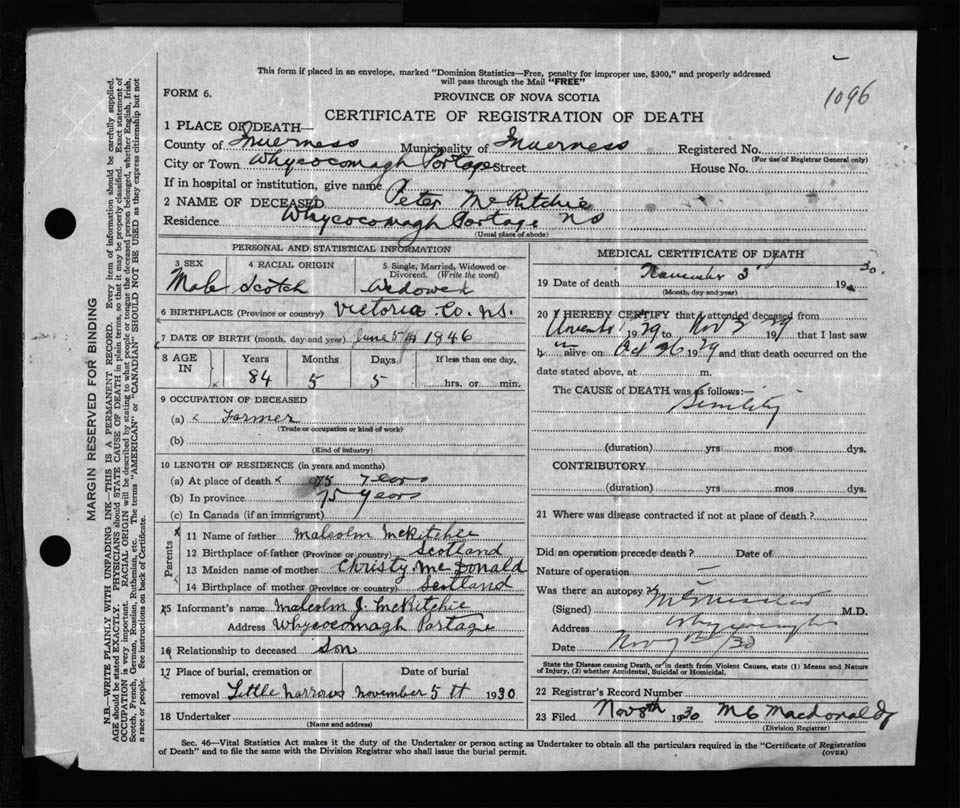 This form if placed in an envelope, marked "Dominion Statistics—Free, penalty for improper use, $300," and properly addressed
will pass through the Mail "FREE"
1096
FORM 6.
PROVINCE OF NOVA SCOTIA
CERTIFICATE OF REGISTRATION OF DEATH
1 PLACE OF DEATH—
County of Inverness Municipality of Inverness Registered No.
(For use of Registrar General only)
City or Town Whycocomagh Portage Street House No.
If in hospital or institution, give name
2 NAME OF DECEASED Peter McRitchie
Residence Whycocomagh Portage NS
(Usual place of abode)
PERSONAL AND STATISTICAL INFORMATION
3 SEX 4 RACIAL ORIGIN 5 Single, Married, Widowed or Divorced. (Write the word)
Male Scotch Widowed
6 BIRTHPLACE (Province or country) Victoria Co. NS.
7 DATE OF BIRTH (month, day and year) June 5th 1846
8 AGE IN Years Months Days If less than one day,
84 5 5 hrs. or min.
9 OCCUPATION OF DECEASED
(a) Farmer
(Trade or occupation or kind of work)
(b)
(Kind of industry)
10 LENGTH OF RESIDENCE (in years and months)
(a) At place of death 75 years
(b) In province 75 years
(c) In Canada (if an immigrant)
Parents
11 Name of father Malcolm McRitchie
12 Birthplace of father (Province or country) Scotland
13 Maiden name of mother Christy McDonald
14 Birthplace of mother (Province or country) Scotland
15 Informant's name Malcolm J. McRitchie
Address Whycocomagh Portage
16 Relationship to deceased Son
17 Place of burial, cremation or removal Date of burial
Little Narrows November 5th 1930
18 Undertaker
(Name and address)
MEDICAL CERTIFICATE OF DEATH
19 Date of death November 3 1930.
(Month, day and year)
20 I HEREBY CERTIFY that I attended deceased from
1929 to Nov 3 1929 that I last saw
h im alive on Oct 26 1929 and that death occurred on the
date stated above, at m.
The CAUSE OF DEATH was as follows:
Senility
(duration) yrs mos dys.
CONTRIBUTORY
(duration) yrs mos dys.
21 Where was disease contracted if not at place of death?
Did an operation precede death? Date of
Nature of operation —
Was there an autopsy?
(Signed) M.D.
Address Whycocomagh
Date Nov 30
State the Disease causing Death, or in death from Violent Causes, state (1) Means and Nature
of Injury, (2) whether Accidental, Suicidal or Homicidal.
22 Registrar's Record Number
23 Filed Nov 8th 1930 M C Macdonald
(Division Registrar)
Sec. 46—Vital Statistics Act makes it the duty of the Undertaker or person acting as Undertaker to obtain all the particulars required in the "Certificate of Registration
of Death" and to file the same with the Division Registrar who shall issue the burial permit.
(OVER)
MARGIN RESERVED FOR BINDING
N.B.—WRITE PLAINLY WITH UNFADING INK—THIS IS A PERMANENT RECORD. Every item of information should be carefully supplied.
AGE should be stated EXACTLY. PHYSICIANS should STATE CAUSE OF DEATH in plain terms, so that it may be properly classified. Exact statement of
OCCUPATION is very important. RACIAL ORIGIN will be described by stating to what people or tongue the deceased person belonged, whether English, Irish,
Scotch, French, German, Russian, Ruthenian, etc. The terms "AMERICAN" or "CANADIAN" SHOULD NOT BE USED as they express citizenship but not
a race or people. See instructions on back of Certificate.